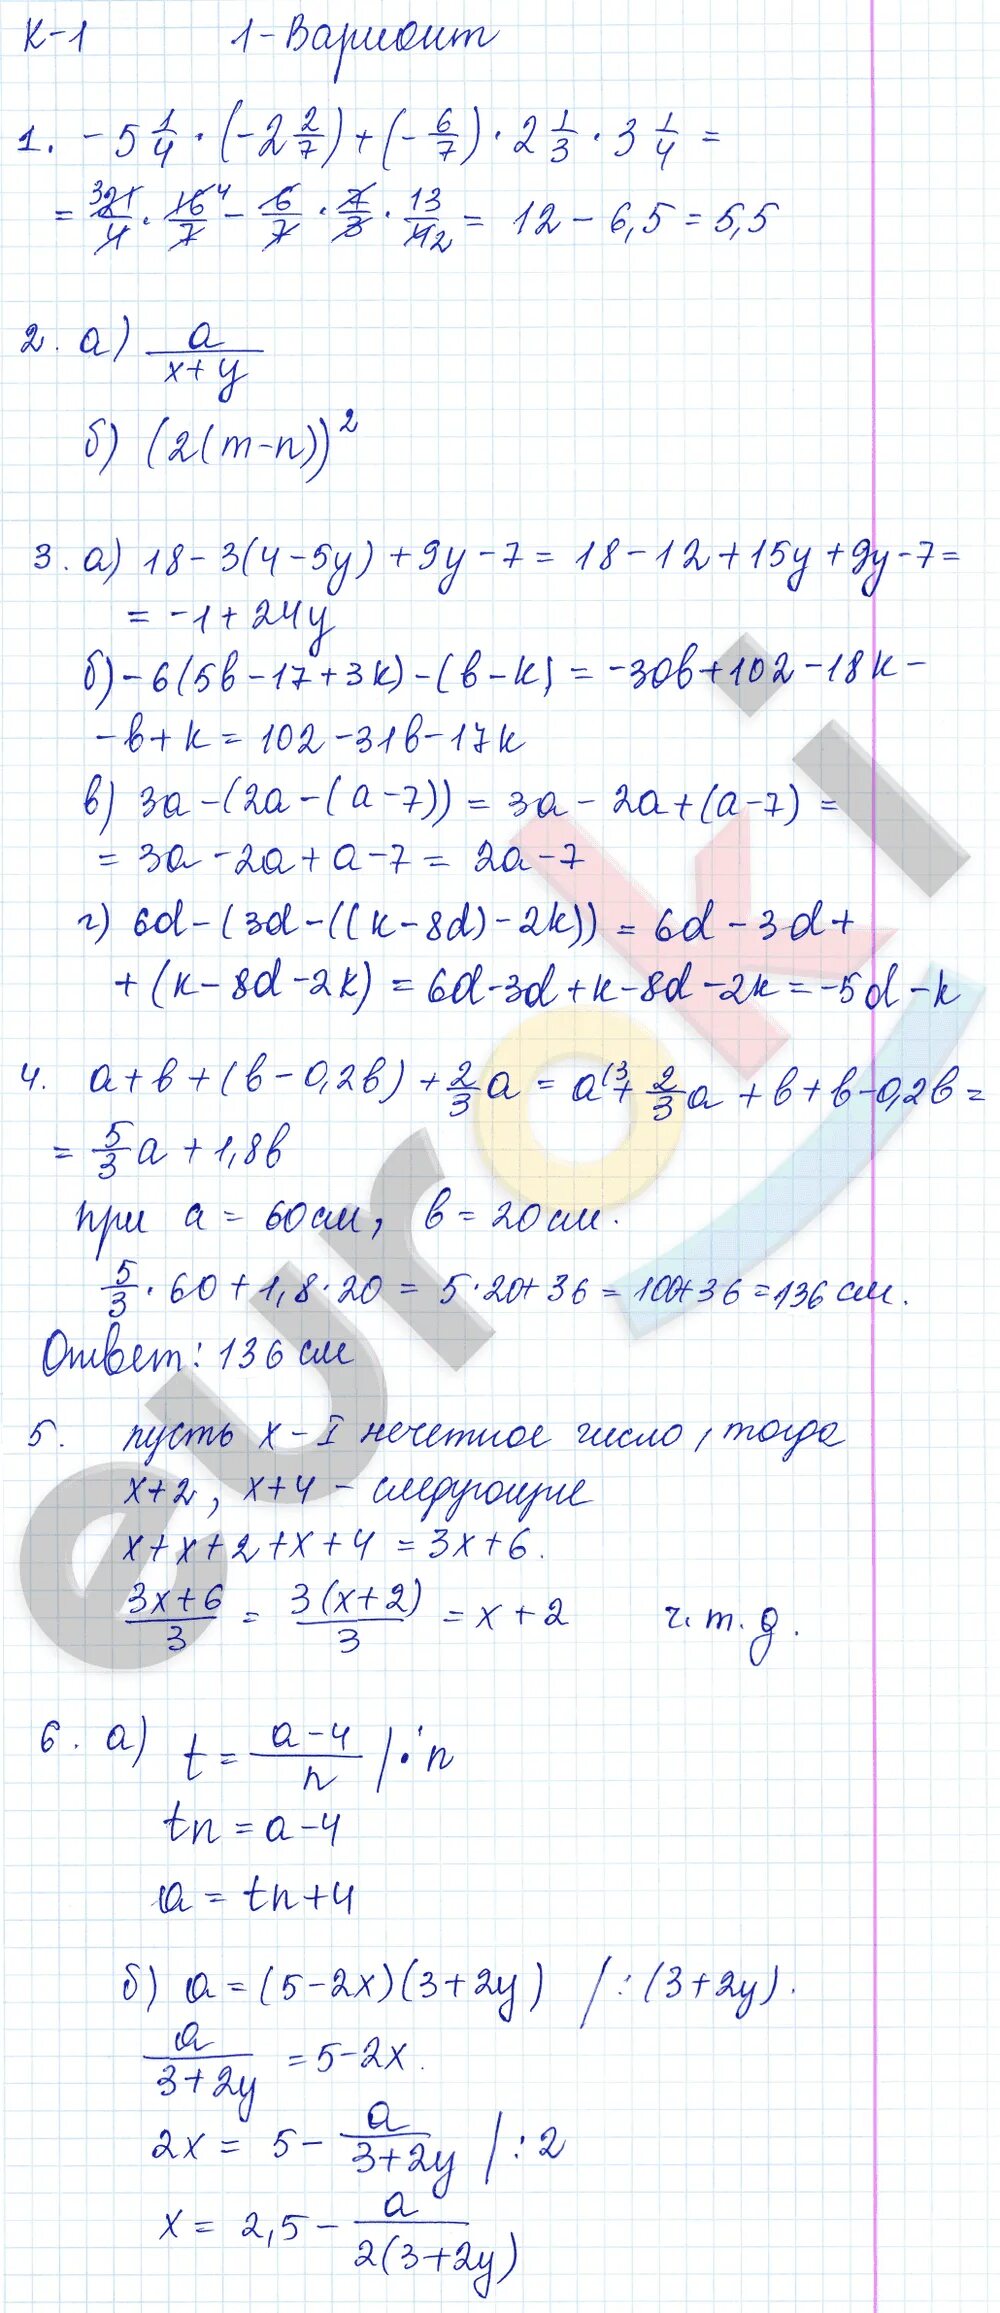 К-1 1-Вариант
1. -5 1/4 · (-2 2/7) + (-6/7) · 2 1/3 · 3 1/4 =
= 21/4 · 16/7 - 6/7 · 7/3 · 13/4 = 12 - 6,5 = 5,5
2. а) a/(x+y)
б) (2(m-n))²
3. а) 18-3(4-5y)+9y-7 = 18-12+15y+9y-7 =
= -1+24y
б) -6(5b-17+3k)-(b-k) = -30b+102-18k-
-b+k = 102-31b-17k
в) 3a-(2a-(a-7)) = 3a-2a+(a-7) =
= 3a-2a+a-7 = 2a-7
г) 6d-(3d-((k-8d)-2k)) = 6d-3d+
+(k-8d-2k) = 6d-3d+k-8d-2k = -5d-k
4. a+b+(b-0,2b)+2/3a = a+2/3a+b+b-0,2b =
= 5/3a+1,8b
при a = 60см, b = 20см.
5/3·60+1,8·20 = 5·20+36 = 100+36 = 136 см.
Ответ: 136 см
5. пусть x-I нечетное число, тогда
x+2, x+4 - следующие
x+x+2+x+4 = 3x+6.
(3x+6)/3 = 3(x+2)/3 = x+2 ч.т.д.
6. а) t = (a-4)/n /·n
tn = a-4
a = tn+4
б) a = (5-2x)(3+2y) /:(3+2y).
a/(3+2y) = 5-2x.
2x = 5 - a/(3+2y) /:2
x = 2,5 - a/(2(3+2y))
euroki